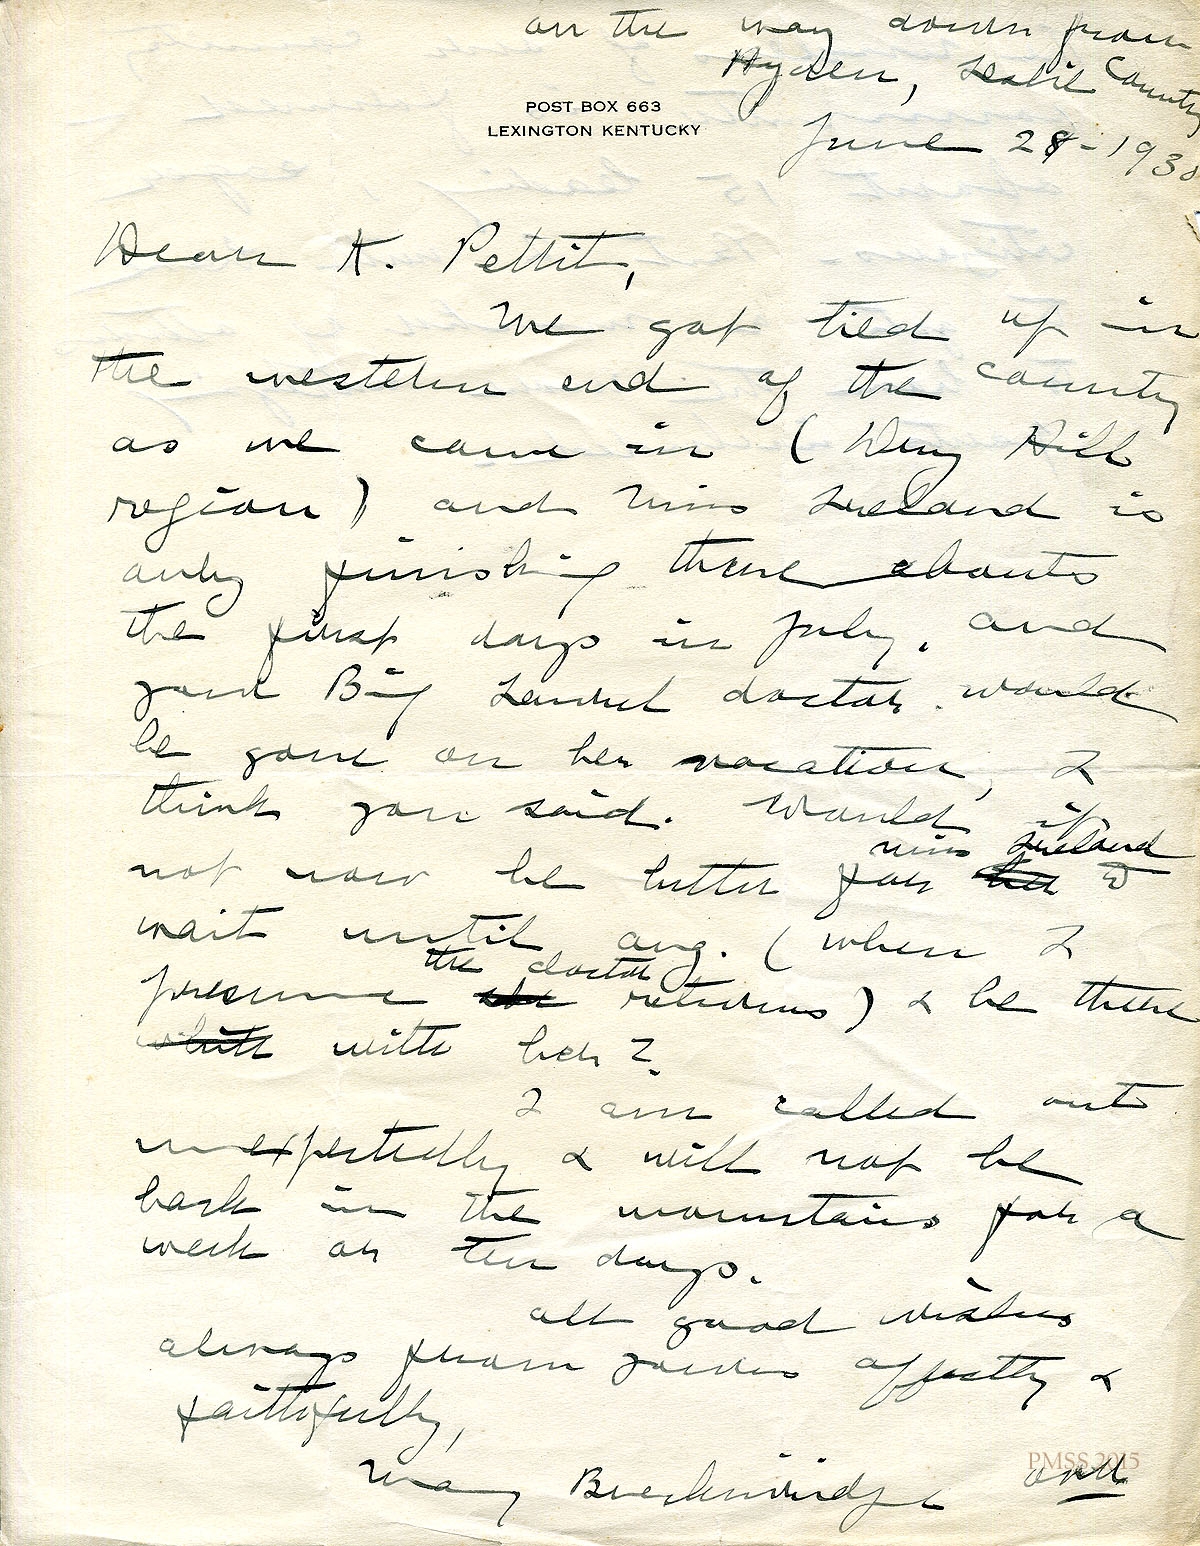 on the way down from
Hyden, Leslie County
POST BOX 663
LEXINGTON KENTUCKY
June 28-1930
Dear K. Pettit,
We got tied up in
the western end of the county
as we came in (Dry Hill
region) and Miss Ireland is
only finishing there abouts
the first days in July, and
your Big Laurel doctor would
be gone on her vacation, I
think you said. Would it
not now be better for Miss Ireland to
wait until Aug. (when I
presume the doctor returns) & be there
with her?
I am called out
unexpectedly & will not be
back in the mountains for a
week or ten days.
All good wishes
always from yours affectly &
faithfully,
Mary Breckinridge
over
PMSS 2015